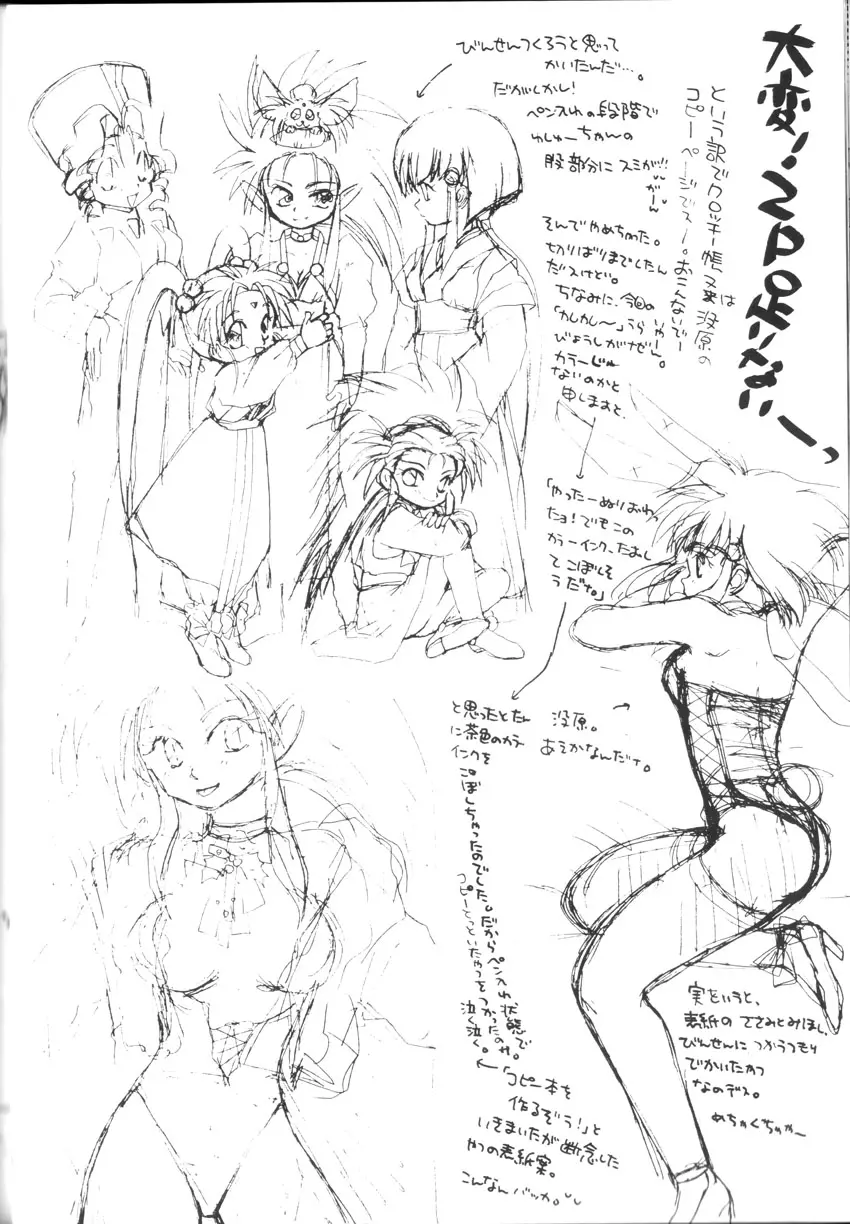 大変!2Pたりないーっ
という訳でクロッキー帳又は没原の
コピーページですー。おこんないでー
びんせんつくろうと思って
かいたんだ…。
だがしかし!
ペン入れの段階で
りゅしゅーちゃんの
股部分にスミが!!
がーん
そんでやめちゃった。
切りばりまでしたん
だけど。
ちなみに、今回の
「かしかし〜」うら
びょうしがぜん
カラーじゃ
ないのかと
申しますと、
「やったーぬりおわっ
たョ!でもこの
カラーインク、たおし
てこぼしそ
うだナ。」
と思ったとたん
に茶色のカラー
インクを
こぼしちゃったのでした。だからペン入れ状態で
コピーとっといたやつをつかったのサ。
泣く泣く。
没原。
あそかなんだナ。
←「コピー本を
作るぞう!」と
いきまいたが断念した
やつの表紙案。
こんなんバッカ。
実をいうと、
表紙のささみとみほし
びんせんにつかうつもり
でかいたやつ
なのデス。
めちゃくちゃやー